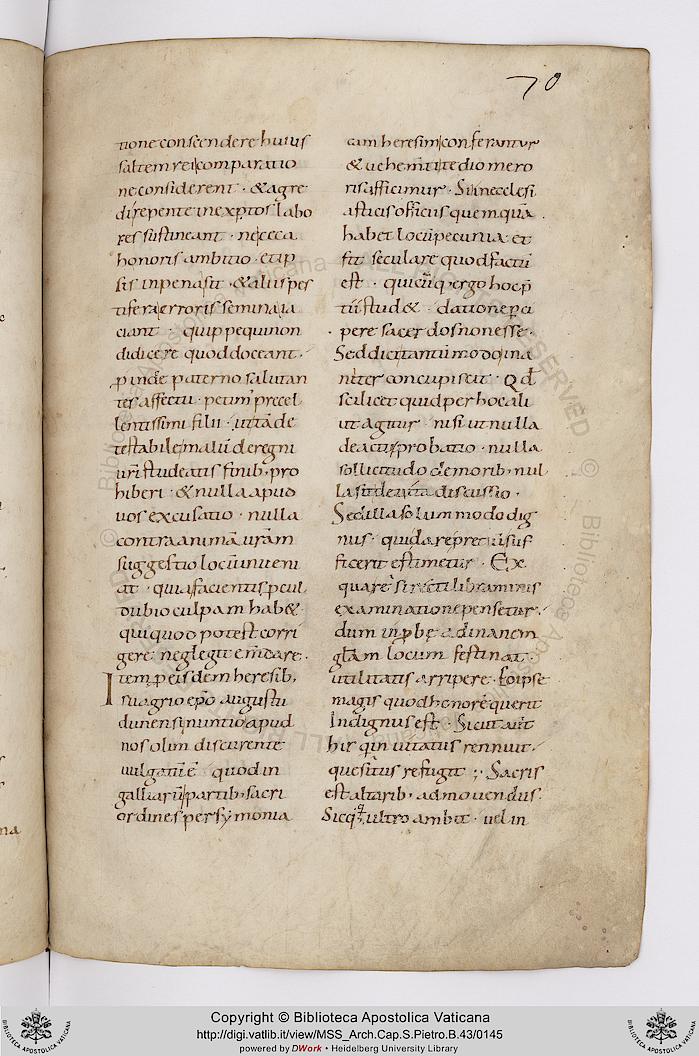 70
tione conscendere huius
saltem rei comparatio
ne considerent · & agre
di repente inexptos labo
res sustineant · ne ceca
honoris ambitio · et ip
sis in pena sit · & aliis pes
tifera erroris semina ia
ciant · quippe qui non
didicere quod doceant ·
pinde paterno salutan
tes affectu · petim precel
lentissimi filii · ut tā de
testabile malū de regni
uri studeatis finib· pro
hiberi · & nulla apud
uos excusatio · nulla
contra animā uram
suggestio locū inueni
at · quia facientis pcul
dubio culpam hab&
qui quod potest corri
gere neglegit emdare ·
Item p eisdem heresib,
suagrio epo augustu
dunensi nuntio apud
nos olim discurente
uulgatū ē quod in
galliarū partib· sacri
ordines per symonia
cam heresim conferantur
& uehemti tedio mero
ris afficimur · Si in eclesi
asticis officiis quemquā
habet locū pecunia · et
fit seculare quod factū
est · quicūq ergo hoc p
tii stud& · datione pci
pere sacerdos non esse
Sed dici tantūmodo ina
niter concupiscit · Qd
scilicet quid per hoc ali
ut agitur nisi ut nulla
de actu probatio · nulla
sollicitudo de morib· nul
la sit de uita discussio ·
Sed ille solummodo dig
nus · qui dare pretiū suf
ficerit estimetur · Ex
qua re si recti libraminis
examinatione pensetur
dum inpbe ad inanem
glam locum festinat
utilitatis arripere · Eo ipse
magis quod honorē querit
Indignus est · Sicut aut
hir qin uitatus rennuit
quesitus refugit ·, Sacris
est altarib· admouendus ·
Sic q ultro ambit · uel in
Copyright © Biblioteca Apostolica Vaticana
http://digi.vatlib.it/view/MSS_Arch.Cap.S.Pietro.B.43/0145
powered by DWork • Heidelberg University Library